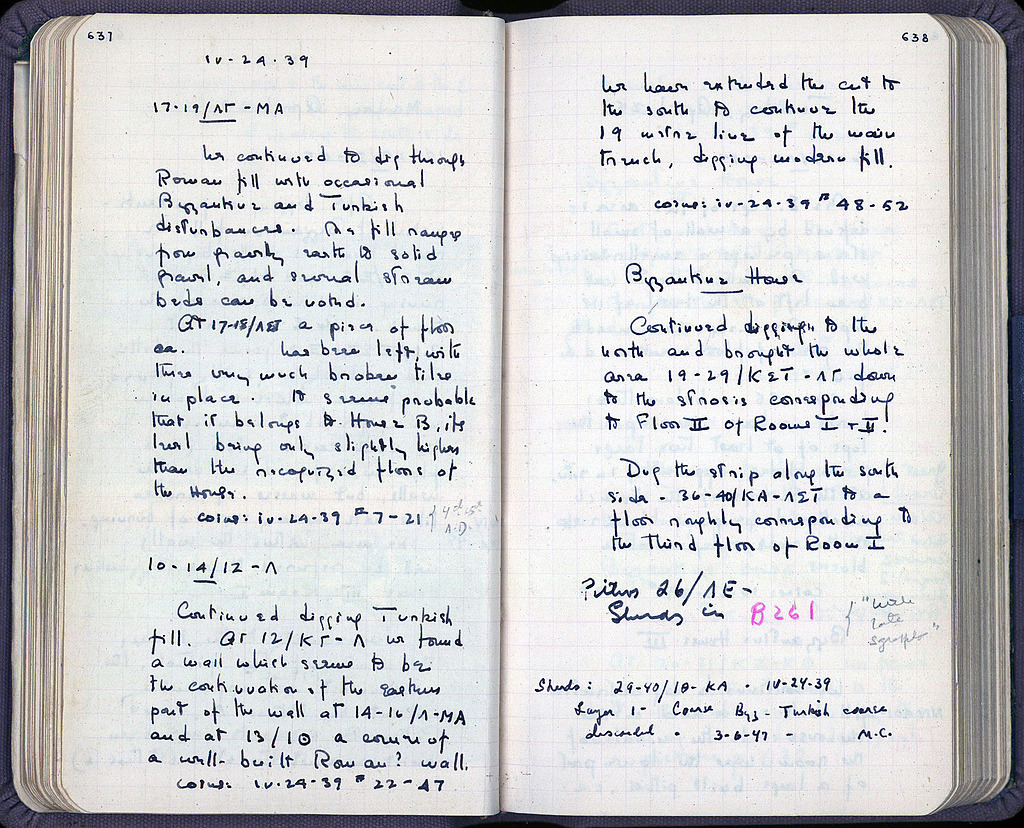 637
IV-24-39
17-19/ΛΓ-MA
We continued to dig through
Roman fill with occasional
Byzantine and Turkish
disturbances. The fill ranges
from gravelly earth to solid
gravel, and several stream
beds can be noted.
At 17-18/ΛΣΤ a piece of floor
ca. has been left, with
three very much broken tiles
in place. It seems probable
that it belongs to House B, its
level being only slightly higher
than the recognized floors of
the House.
coins: IV-24-39 #7-21 { 4th-5th
A.D.
10-14/12-Λ
Continued digging Turkish
fill. At 12/KΓ-Λ we found
a wall which seems to be
the continuation of the eastern
part of the wall at 14-16/Λ-MA
and at 13/ΙΘ a corner of
a well-built Roman? wall.
coins: IV-24-39 #22-47
638
We have extended the cut to
the south to continue the
19 metre line of the main
trench, digging modern fill.
coins: IV-24-39 #48-52
Byzantine House
Continued digging to the
north and brought the whole
area 19-29/KΣΤ-ΛΓ down
to the strosis corresponding
to Floor II of Rooms I + II.
Dug the strip along the south
side - 36-40/KA-ΛΣΤ to a
floor roughly corresponding to
the third floor of Room I
Pithos 26/ΛE-
Sherds in B261 { "Wheel
late
sgraffito"
Sherds: 29-40/ΙΘ-KA - IV-24-39
Layer 1- Coarse Byz - Turkish coarse
discarded - 3-6-47 - M.C.